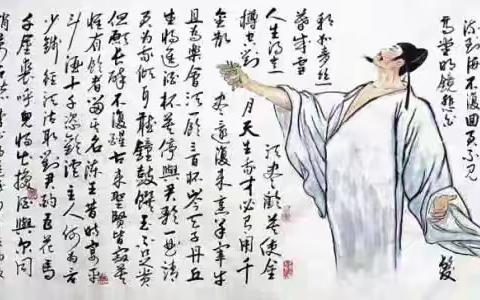 流到海不復回君不見
高堂明鏡悲白
髮
朝如青絲
暮成雪
人生得意須盡歡莫使金
樽空對月天生吾才必有用千
金散盡還復來烹羊宰牛
且為樂會須一飲三百杯岑夫子丹丘
生將進酒杯莫停與君歌一曲請
君為我傾耳聽鐘鼓饌玉不足貴
但願長醉不復醒古來聖賢皆寂寞
惟有飲者留其名陳王昔時宴平
斗酒十千恣歡謔主人何為言
少錢徑須沽取對君酌五花馬
千金裘呼兒將出換酒與爾同
銷萬古愁